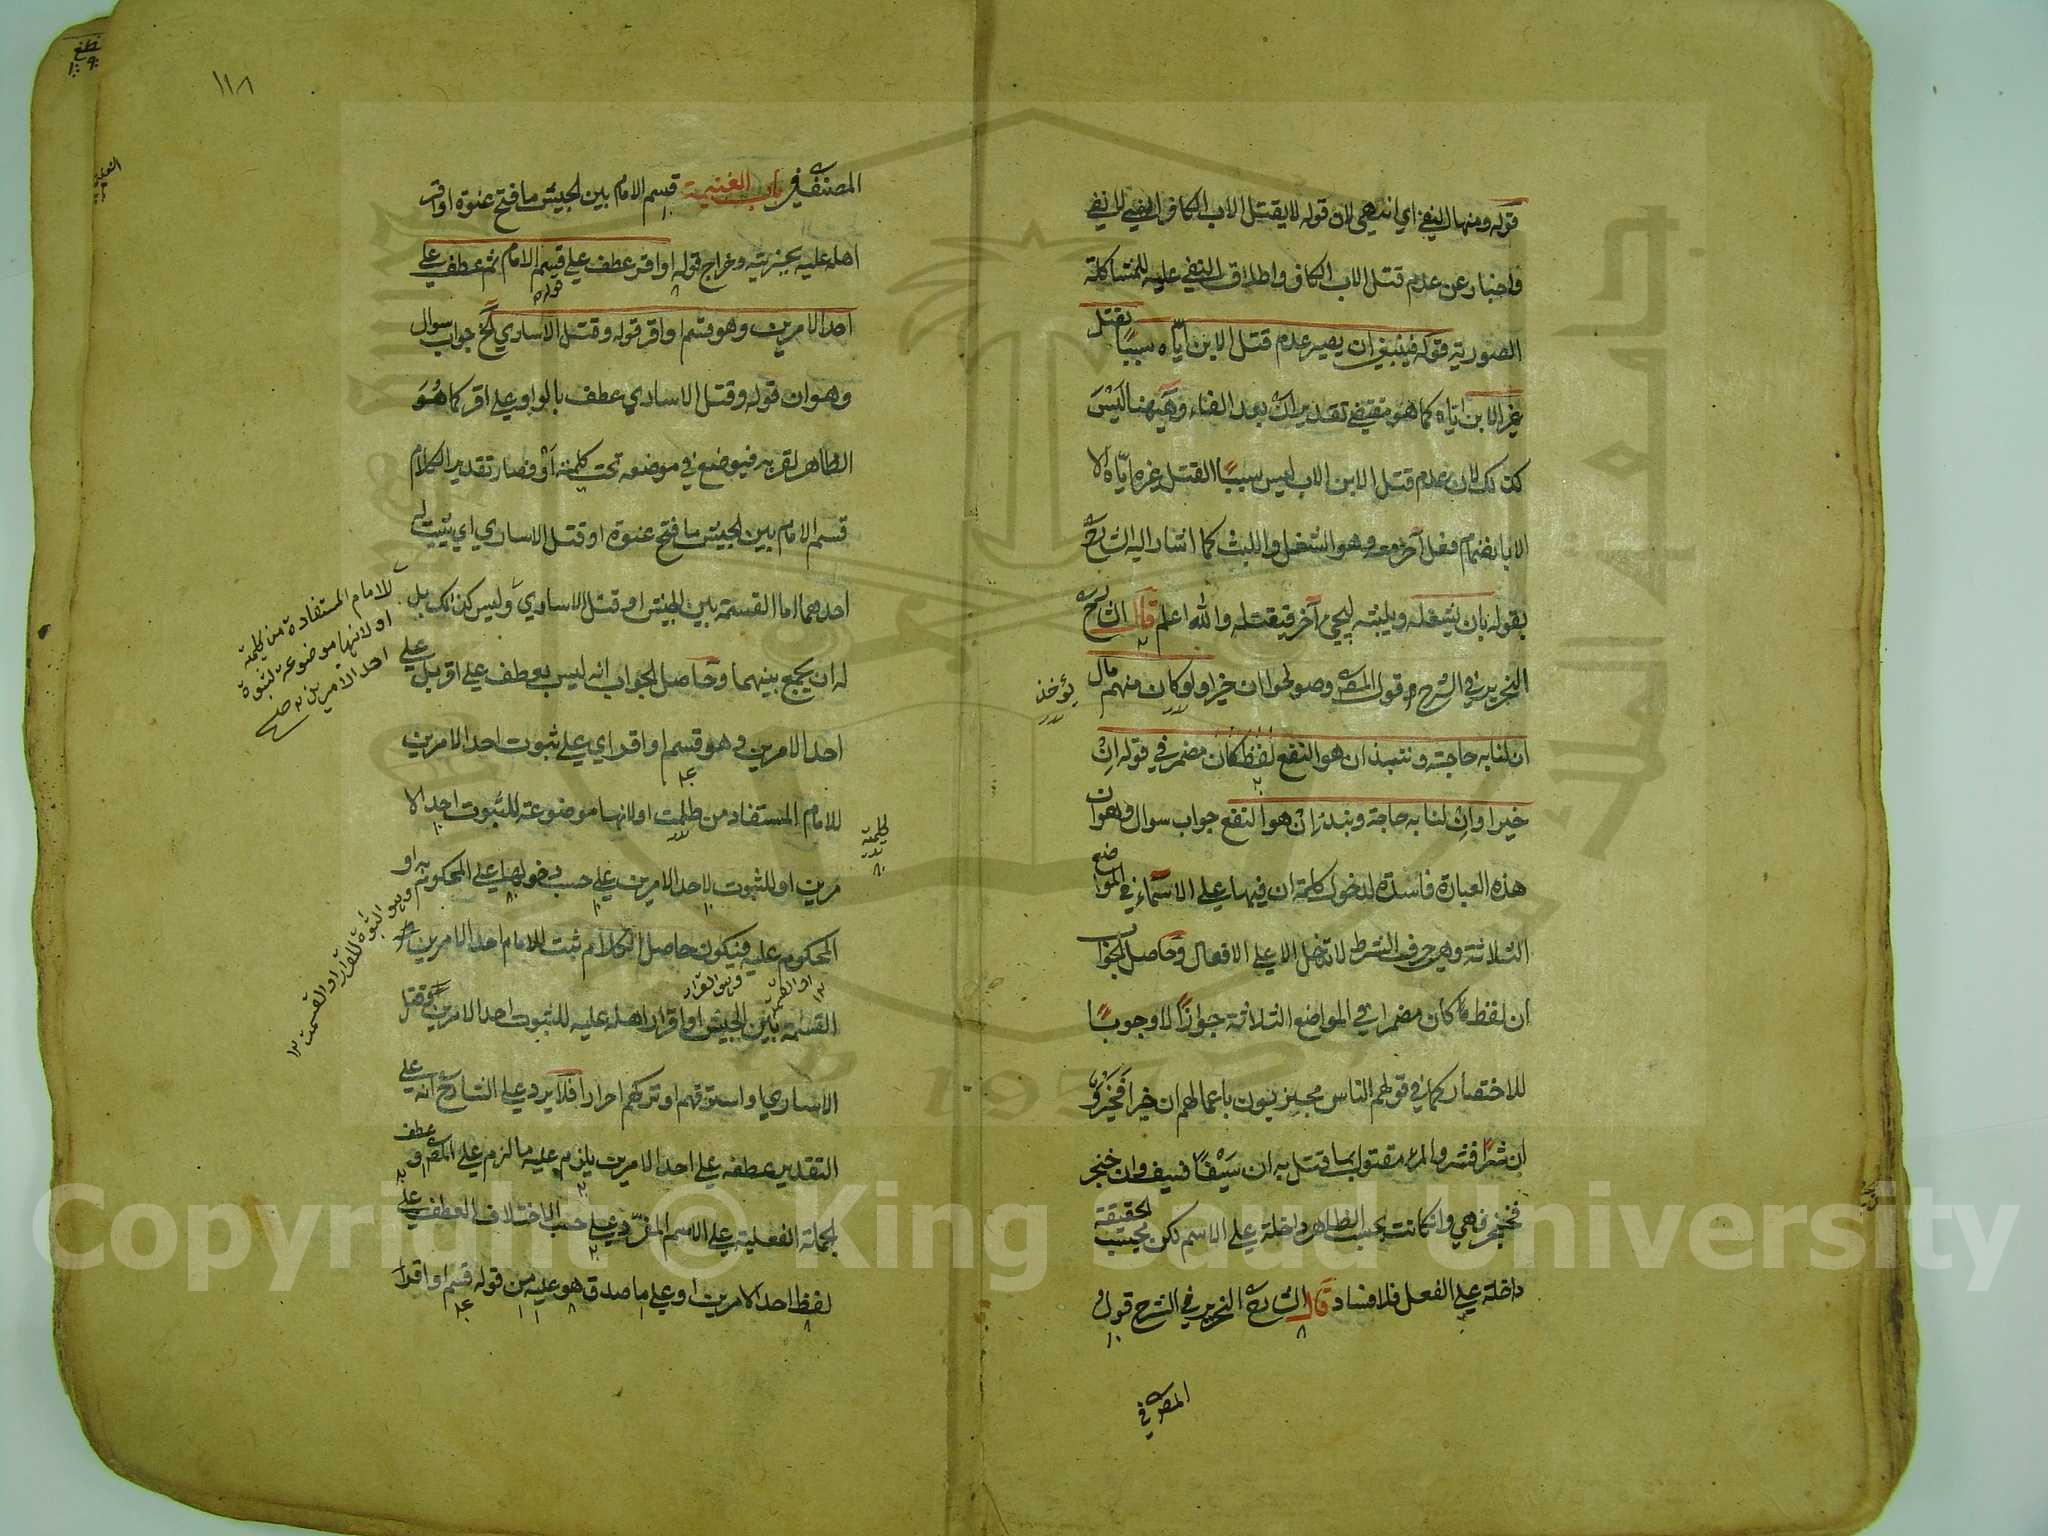 قوله ومنها النفي اي انه هي لان قوله لا يقتل الاب الكافر
واخبار عن عدم قتل الاب الكافر واطلاق النفي عليه للمشاكلة
الصورية قوله فينبغي ان يصير عدم قتل الابن اياه سببا يقتل
غير الابن اياه كما هو مقتضى تقدير ان بعد الفاء وههنا ليس
كذلك لان عدم قتل الابن الاب ليس سببا لقتل غيره اياه الا
الا بانضمام فعل آخر معه وهو الشغل واللبث كما اشار اليه الشارح
بقوله بان يشغله ويلبثه ليجئ آخر فيقتله والله اعلم قال الشارح
النحرير في الشرح قول المص وصولحوا ان خيرا ولو كان منهم مال
يؤخذ
ان لنا به حاجة ونبذ ان هو انفع لفظ كان مضمر في قوله ان
خيرا وان لنا به حاجة ونبذ ان هو انفع جواب سوال وهو ان
هذه العبارة فاسدة لدخول كلمة ان فيها على الاسماء في المواضع
الثلاثة وهي حرف الشرط لا تدخل الا على الافعال وحاصل الجواب
ان لفظة كان مضمر في المواضع الثلاثة جوازا لا وجوبا
للاختصار كما في قولهم الناس مجزيون باعمالهم ان خيرا فخير و
ان شرا فشر والمرء مقتول بما قتل به ان سيفا فسيف وان خنجر
فخنجر فهي وان كانت بحسب الظاهر داخلة على الاسم لكن بحسب الحقيقة
داخلة على الفعل فلا فساد قال الشارح النحرير في الشرح قول
المص في
١١٨
المصنف في باب الغنيمة قسم الامام بين الجيش ما فتح عنوة او اقر
اهله عليه بجزية وخراج قوله او اقر عطف على قسم الامام ثم عطف على
قوله
احد الامرين وهو قسم او اقر قوله وقتل الاسارى الخ جواب سوال
وهو ان قوله وقتل الاسارى عطف بالواو على اقر كما هو
الظاهر لقربه فيوضع في موضعه تحت كلمة او فصار تقدير الكلام
قسم الامام بين الجيش ما فتح عنوة او قتل الاسارى اي يثبت له
احدهما اما القسمة بين الجيش او قتل الاسارى وليس كذلك بل
له ان يجمع بينهما وحاصل الجواب انه ليس بعطف على اقر بل على
احد الامرين وهو قسم او اقر اي على ثبوت احد الامرين
للامام المستفاد من كلمة او لانها موضوعة للثبوت احد الا
كلمة
مرين او للثبوت لاحد الامرين على حسب دخولها على المحكوم به او
المحكوم عليه فيكون حاصل الكلام ثبت للامام احد الامرين
القسمة بين الجيش او اقرار اهله عليه للثبوت احد الامرين وقتل
الاسارى او استرقهم او تركهم احرارا فلا يرد على الشارح انه على
التقدير عطفه على احد الامرين يلزم عليه ما لزم على المص و عطف
الجملة الفعلية على الاسم المفرد على حسب الاختلاف العطف على
لفظ احد الامرين او على ما صدق هو عليه من قوله قسم او اقر
للامام المستفادة من كلمة
او لانها موضوعة لثبوة
احد الامرين صح
Copyright © King Saud University
1957